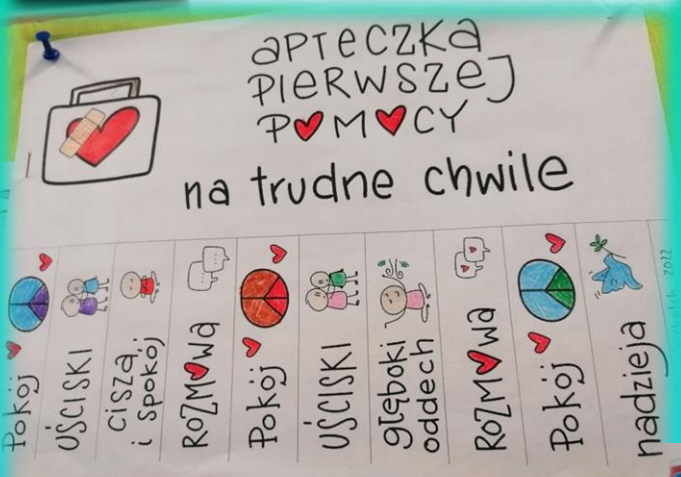 apteczka
pierwszej
pomocy
na trudne chwile
Pokój
uściski
cisza
i spokój
Rozmowa
Pokój
uściski
głęboki
oddech
Rozmowa
Pokój
nadzieja
2022